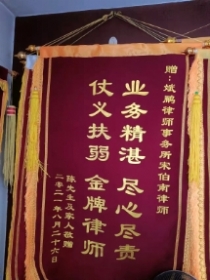 赠：斌鹏律师事务所宋伯南律师
业务精湛 尽心尽责
仗义扶弱 金牌律师
陈先生及家人敬赠
二零二一年八月二十六日